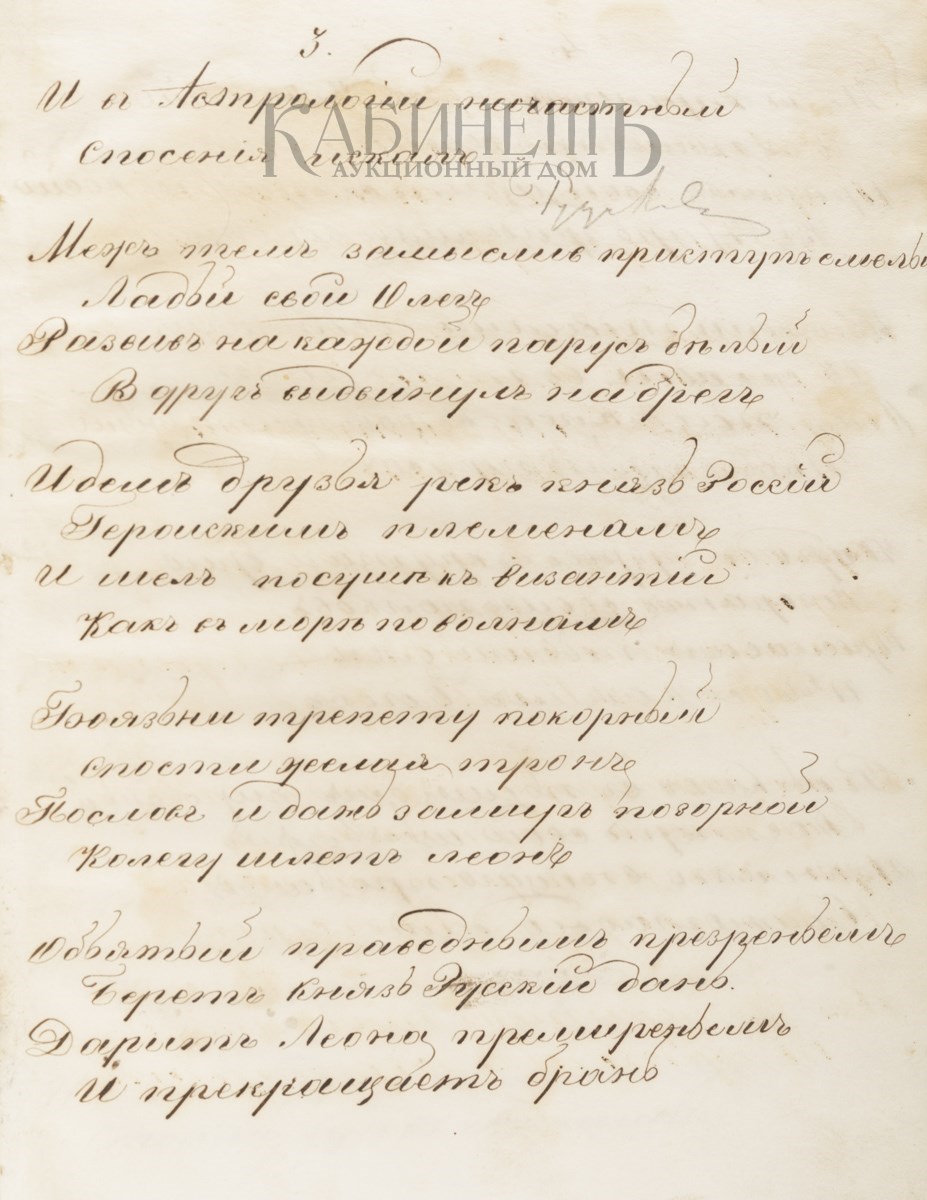 3.
И въ Астрологіи несчастный
Спосенія искалъ
КАБИНЕТЪ
АУКЦИОННЫЙ ДОМ
Межъ темъ замысливъ приступъ смелы
Ладьи свои Олегъ
Развивъ на каждой парусъ бѣлый
В другъ выдвинулъ на брегъ
Идемъ друзья рекъ князь Россіи
Героискимъ племенамъ
И шелъ посушѣ къ Византіи
Какъ въ морѣ по волнамъ
Боязьни трепету покорный
Спости желая тронъ
Пословъ и дань замиръ позорной
Колегу шлетъ леонъ
Объятый праведнымъ презреньемъ
Беретъ князь Русскій дань.
Даритъ Леона премиреньемъ
И прекращаетъ брань